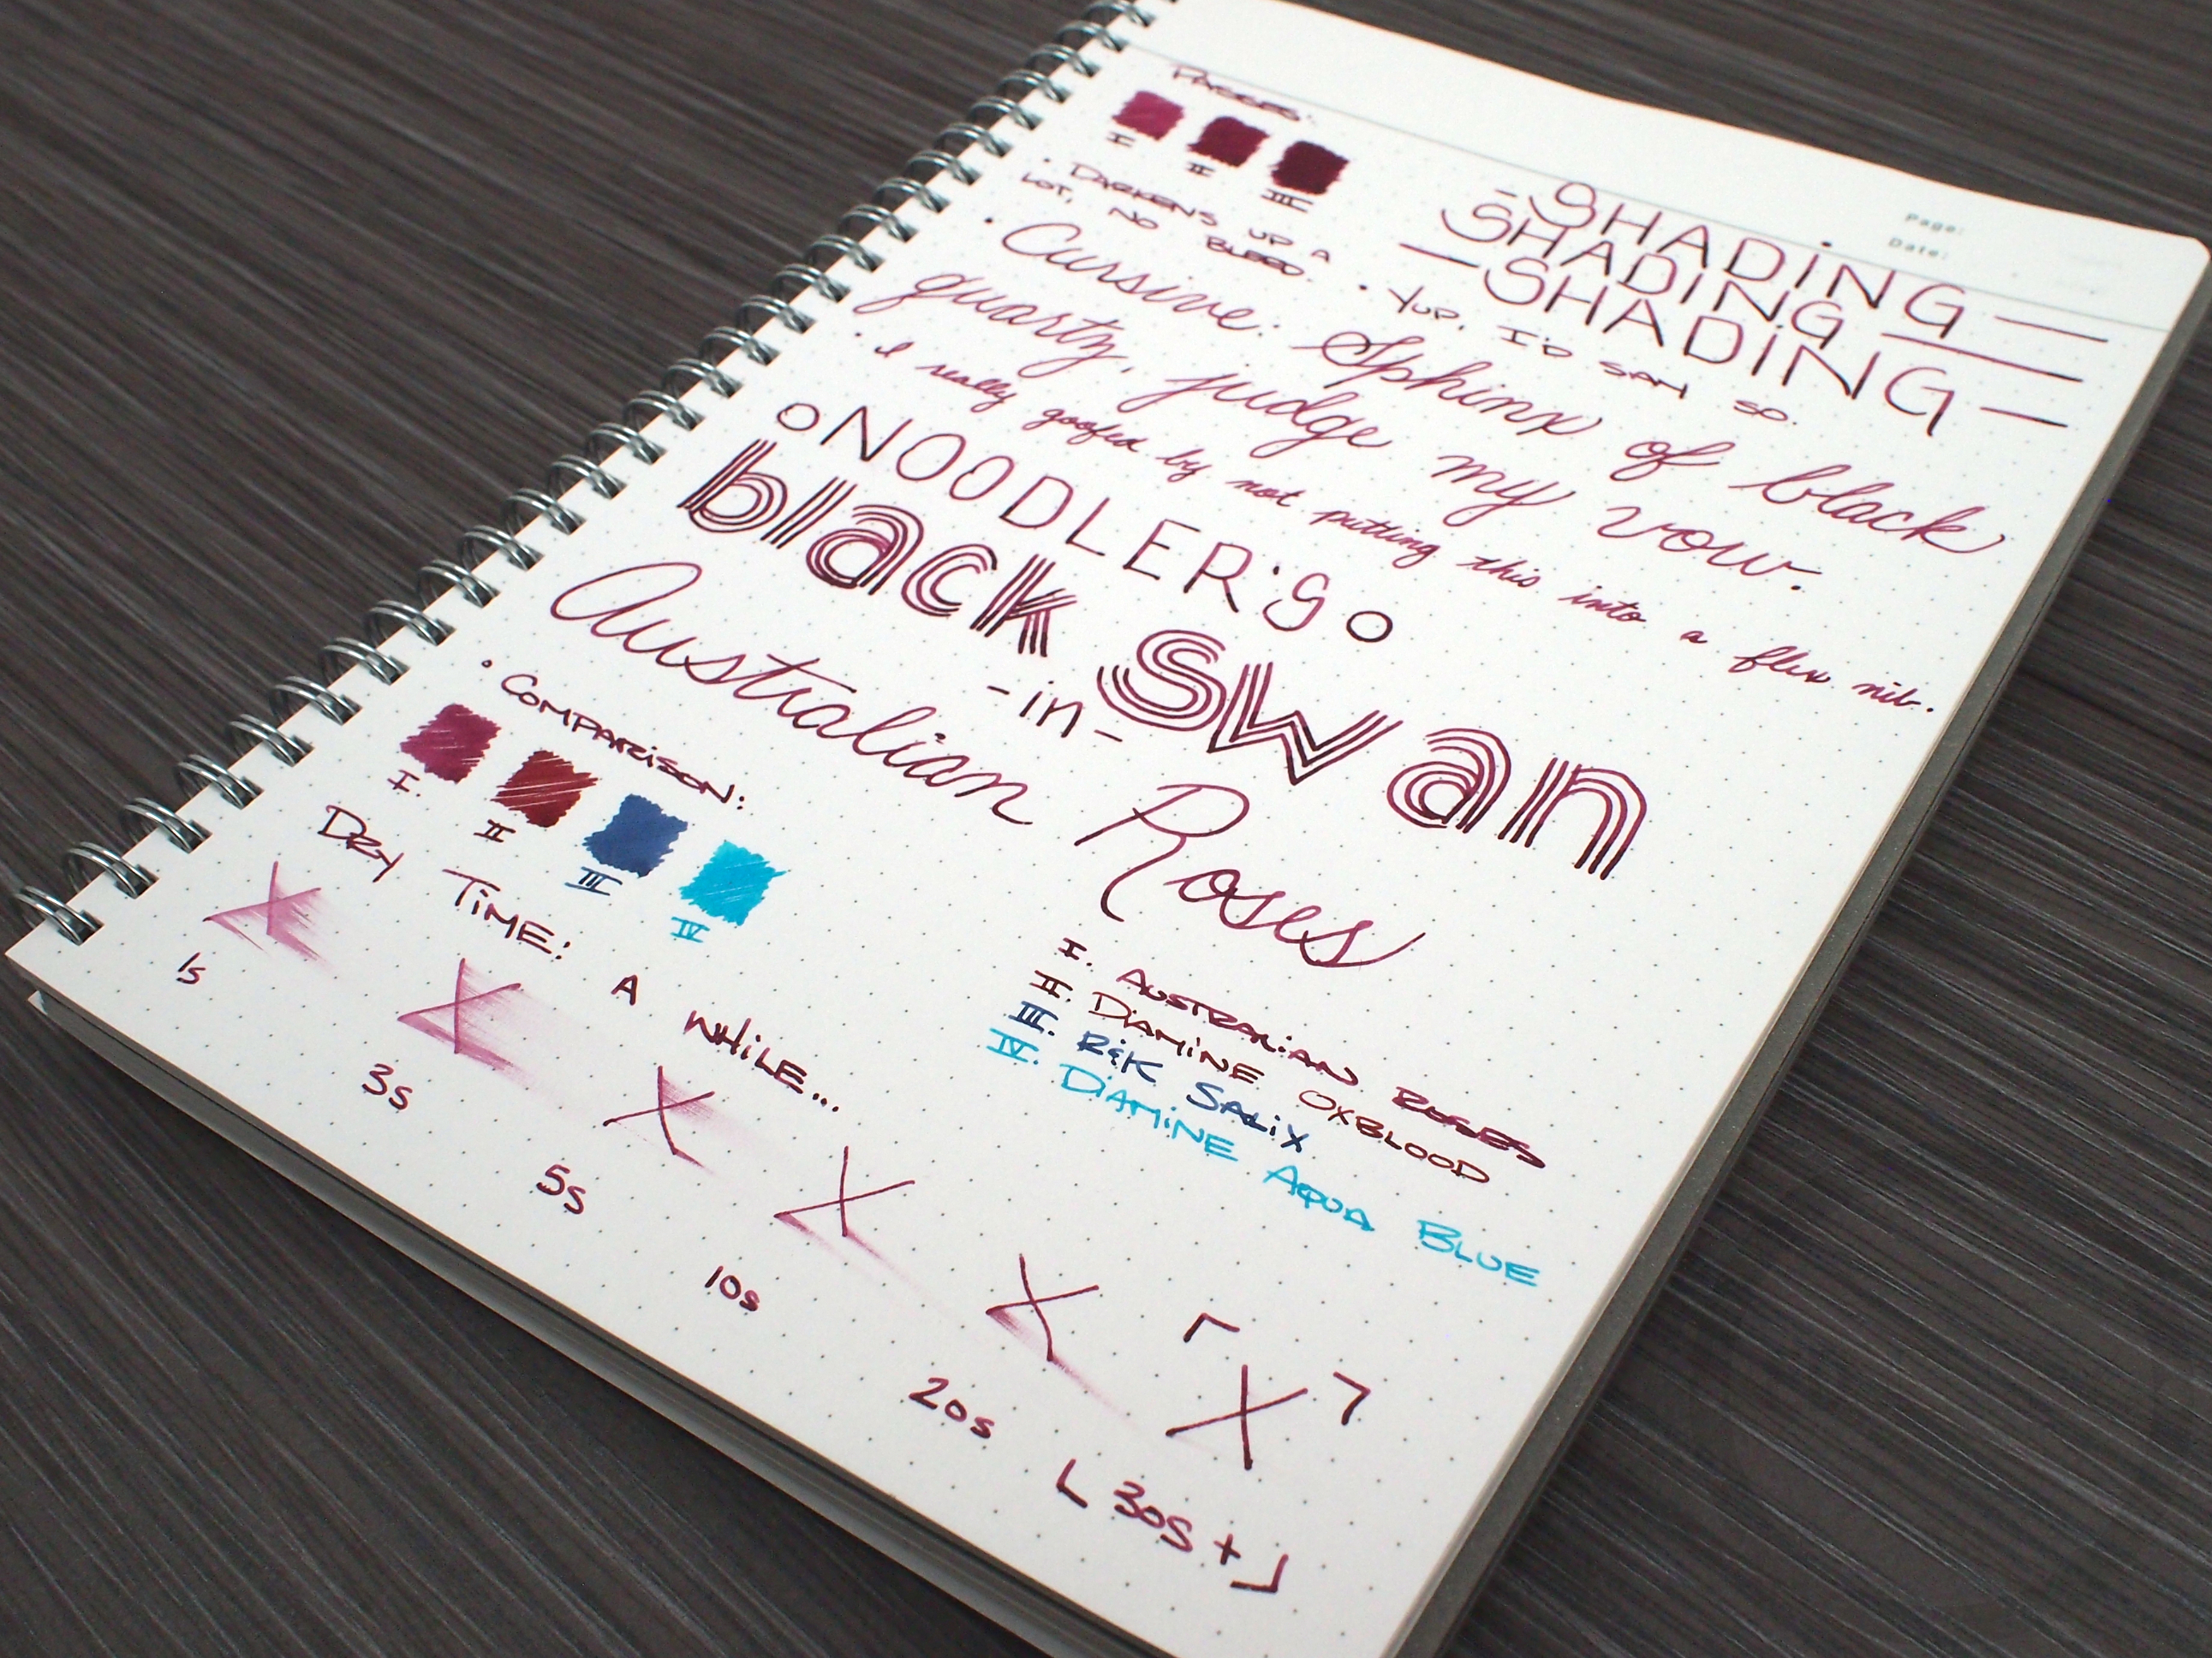 Page:
Date:
PASSES:
I II III
• DARKENS UP A
LOT, NO BLEED.
- SHADING -
SHADING -
- SHADING -
• YUP. I'D SAY SO.
• Cursive: Sphinx of black
quartz, judge my vow.
• I really goofed by not putting this into a flex nib.
NOODLER'S
black swan
-in-
Australian Roses
• COMPARISON:
I. II III IV
I. AUSTRALIAN ROSES
II. DIAMINE OXBLOOD
III. R&K SALIX
IV. DIAMINE AQUA BLUE
DRY TIME: A WHILE...
X X X X X X
1s 3s 5s 10s 20s 30s+